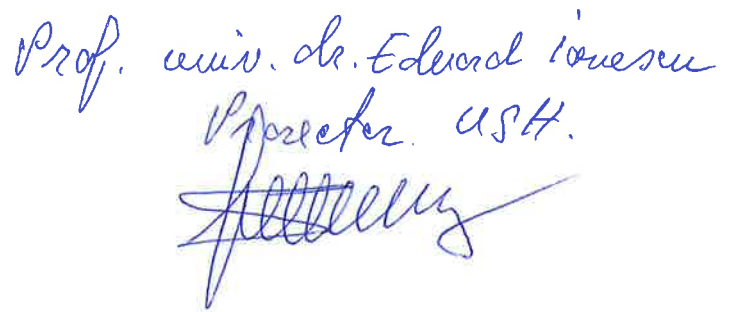 Prof. univ. dr. Eduard Ionescu
Prorector USH.